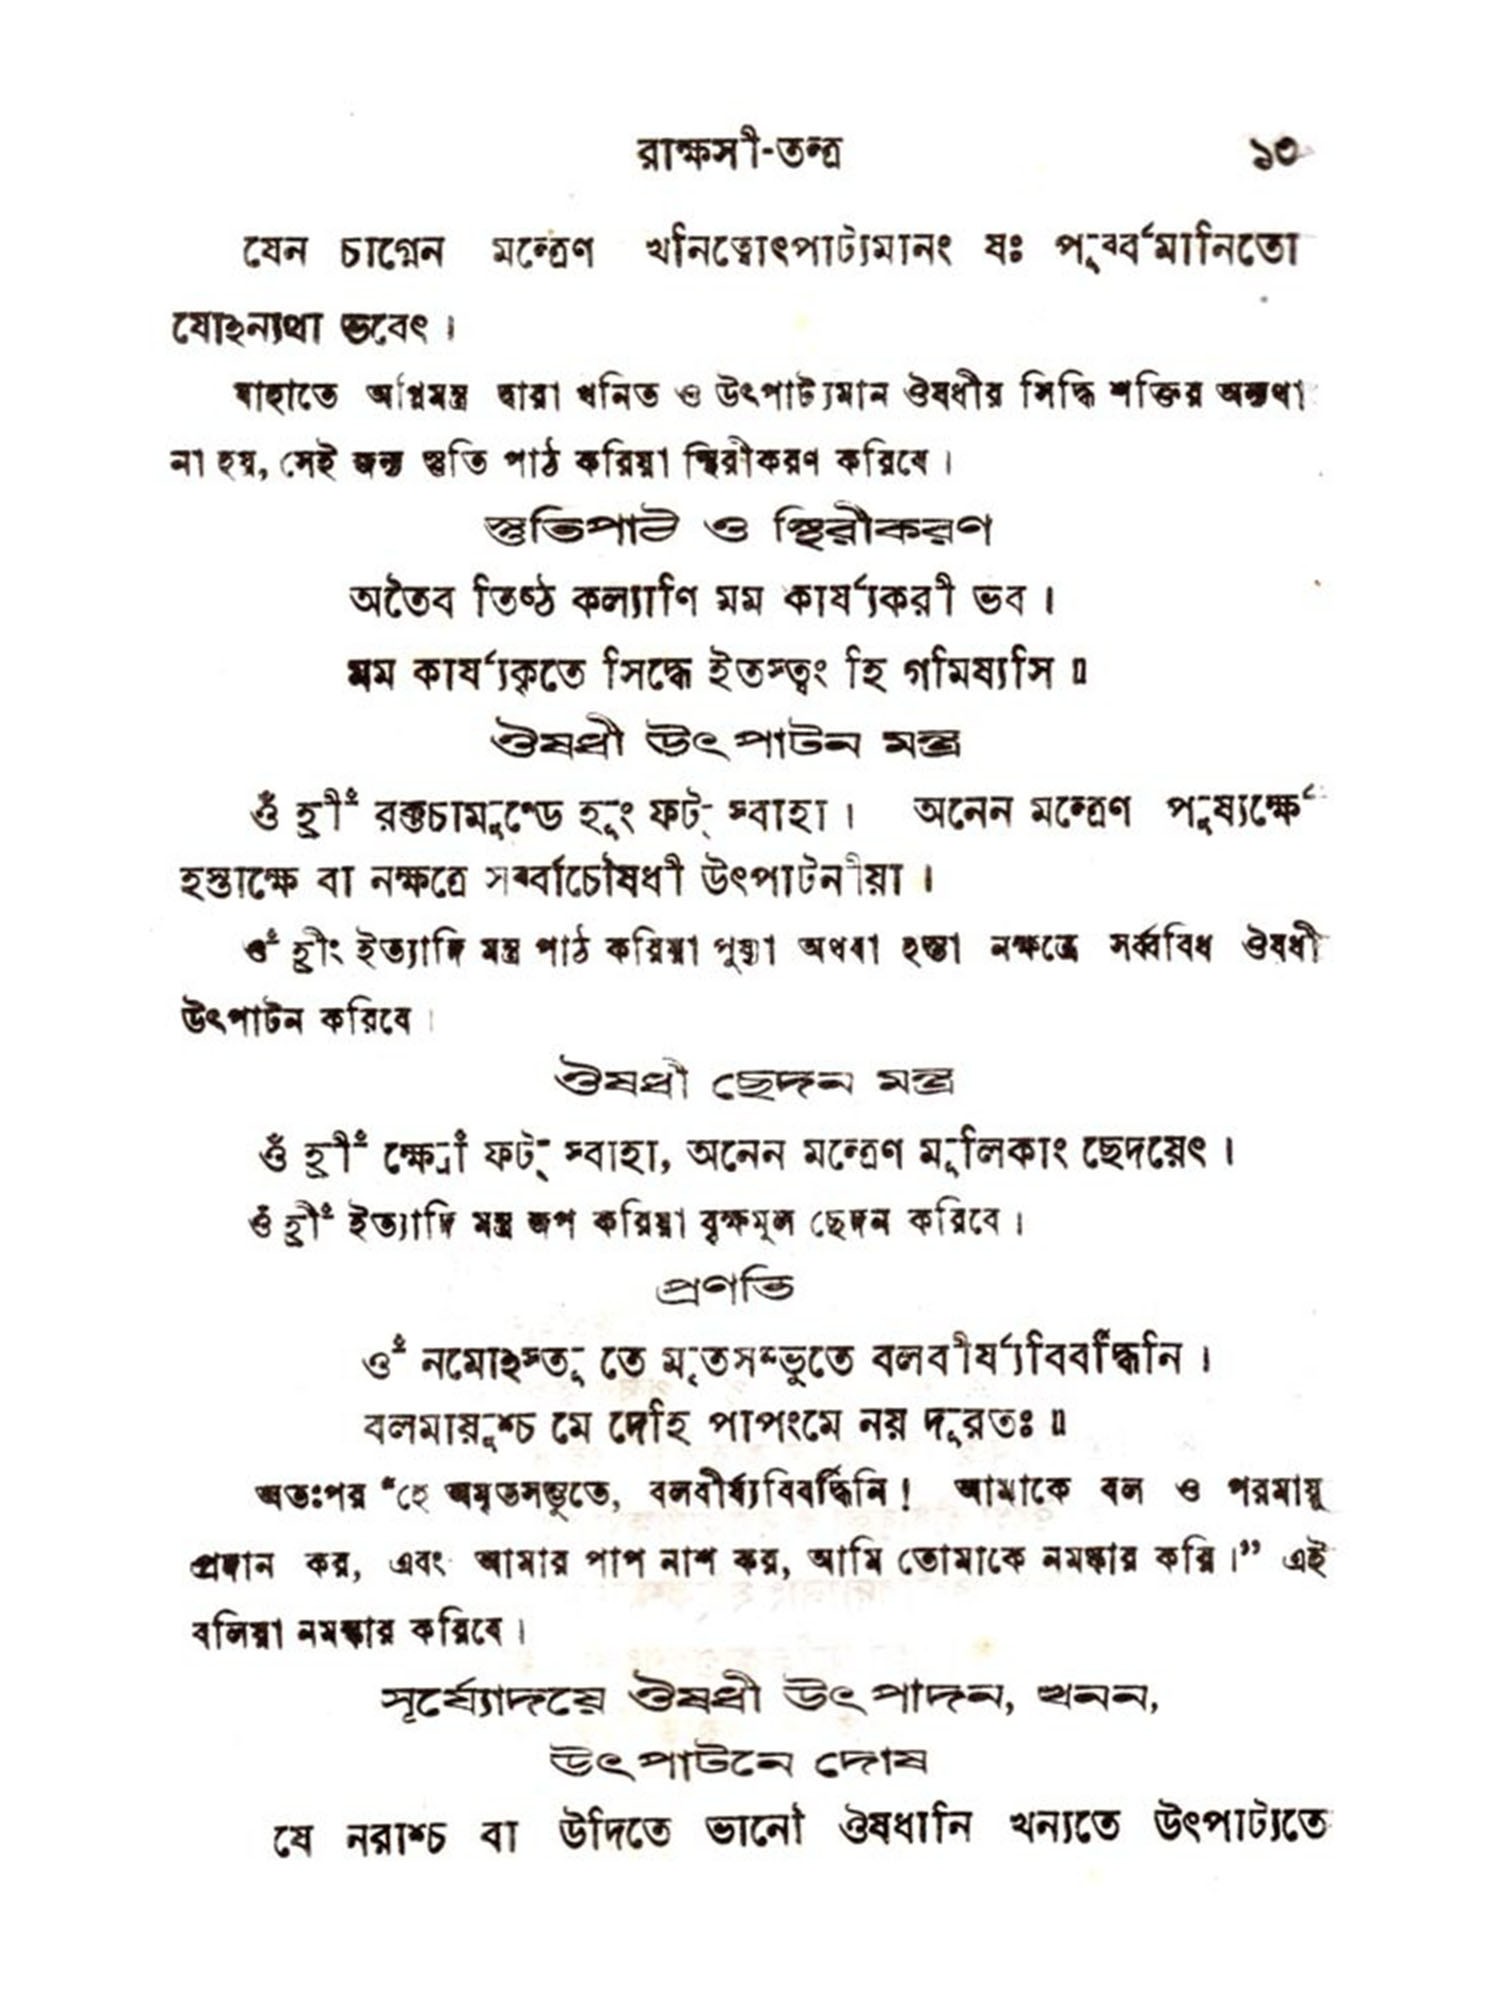 রাক্ষসী-তন্ত্র ১৩
যেন চাগ্নেন মন্ত্রেণ খনিত্বোৎপাট্যমানং ষঃ পূর্ব্বমানিতো
যোহন্যথা ভবেৎ।
যাহাতে অগ্নিমন্ত্র দ্বারা খনিত ও উৎপাট্যমান ঔষধীর সিদ্ধি শক্তির অন্যথা
না হয়, সেই জন্য স্তুতি পাঠ করিয়া স্থিরীকরণ করিবে।
স্তুতিপাঠ ও স্থিরীকরণ
অতৈব তিষ্ঠ কল্যাণি মম কার্য্যকরী ভব।
মম কার্য্যকৃতে সিদ্ধে ইতস্ত্বং হি গমিষ্যসি॥
ঔষধী উৎপাটন মন্ত্র
ওঁ হ্রীং রক্তচামুণ্ডে হূং ফট্ স্বাহা। অনেন মন্ত্রেণ পুষ্যর্ক্ষে
হস্তাক্ষে বা নক্ষত্রে সর্ব্বাচৌষধী উৎপাটনীয়া।
ওঁ হ্রীং ইত্যাদি মন্ত্র পাঠ করিয়া পুষ্যা অথবা হস্তা নক্ষত্রে সর্ব্ববিধ ঔষধী
উৎপাটন করিবে।
ঔষধী ছেদন মন্ত্র
ওঁ হ্রীং ক্ষ্রোং ফট্ স্বাহা, অনেন মন্ত্রেণ মূলিকাং ছেদয়েৎ।
ওঁ হ্রীং ইত্যাদি মন্ত্র জপ করিয়া বৃক্ষমূল ছেদন করিবে।
প্রণতি
ওঁ নমোহস্তু তে মৃতসম্ভুতে বলবীর্য্যবিবর্দ্ধিনি।
বলমায়ুশ্চ মে দেহি পাপংমে নয় দূরতঃ॥
অতঃপর “হে অমৃতসম্ভুতে, বলবীর্য্যবিবর্দ্ধিনি! আমাকে বল ও পরমায়ু
প্রদান কর, এবং আমার পাপ নাশ কর, আমি তোমাকে নমস্কার করি।” এই
বলিয়া নমস্কার করিবে।
সূর্য্যোদয়ে ঔষধী উৎপাদন, খনন,
উৎপাটনে দোষ
যে নরাশ্চ বা উদিতে ভানৌ ঔষধানি খন্যতে উৎপাট্যতে